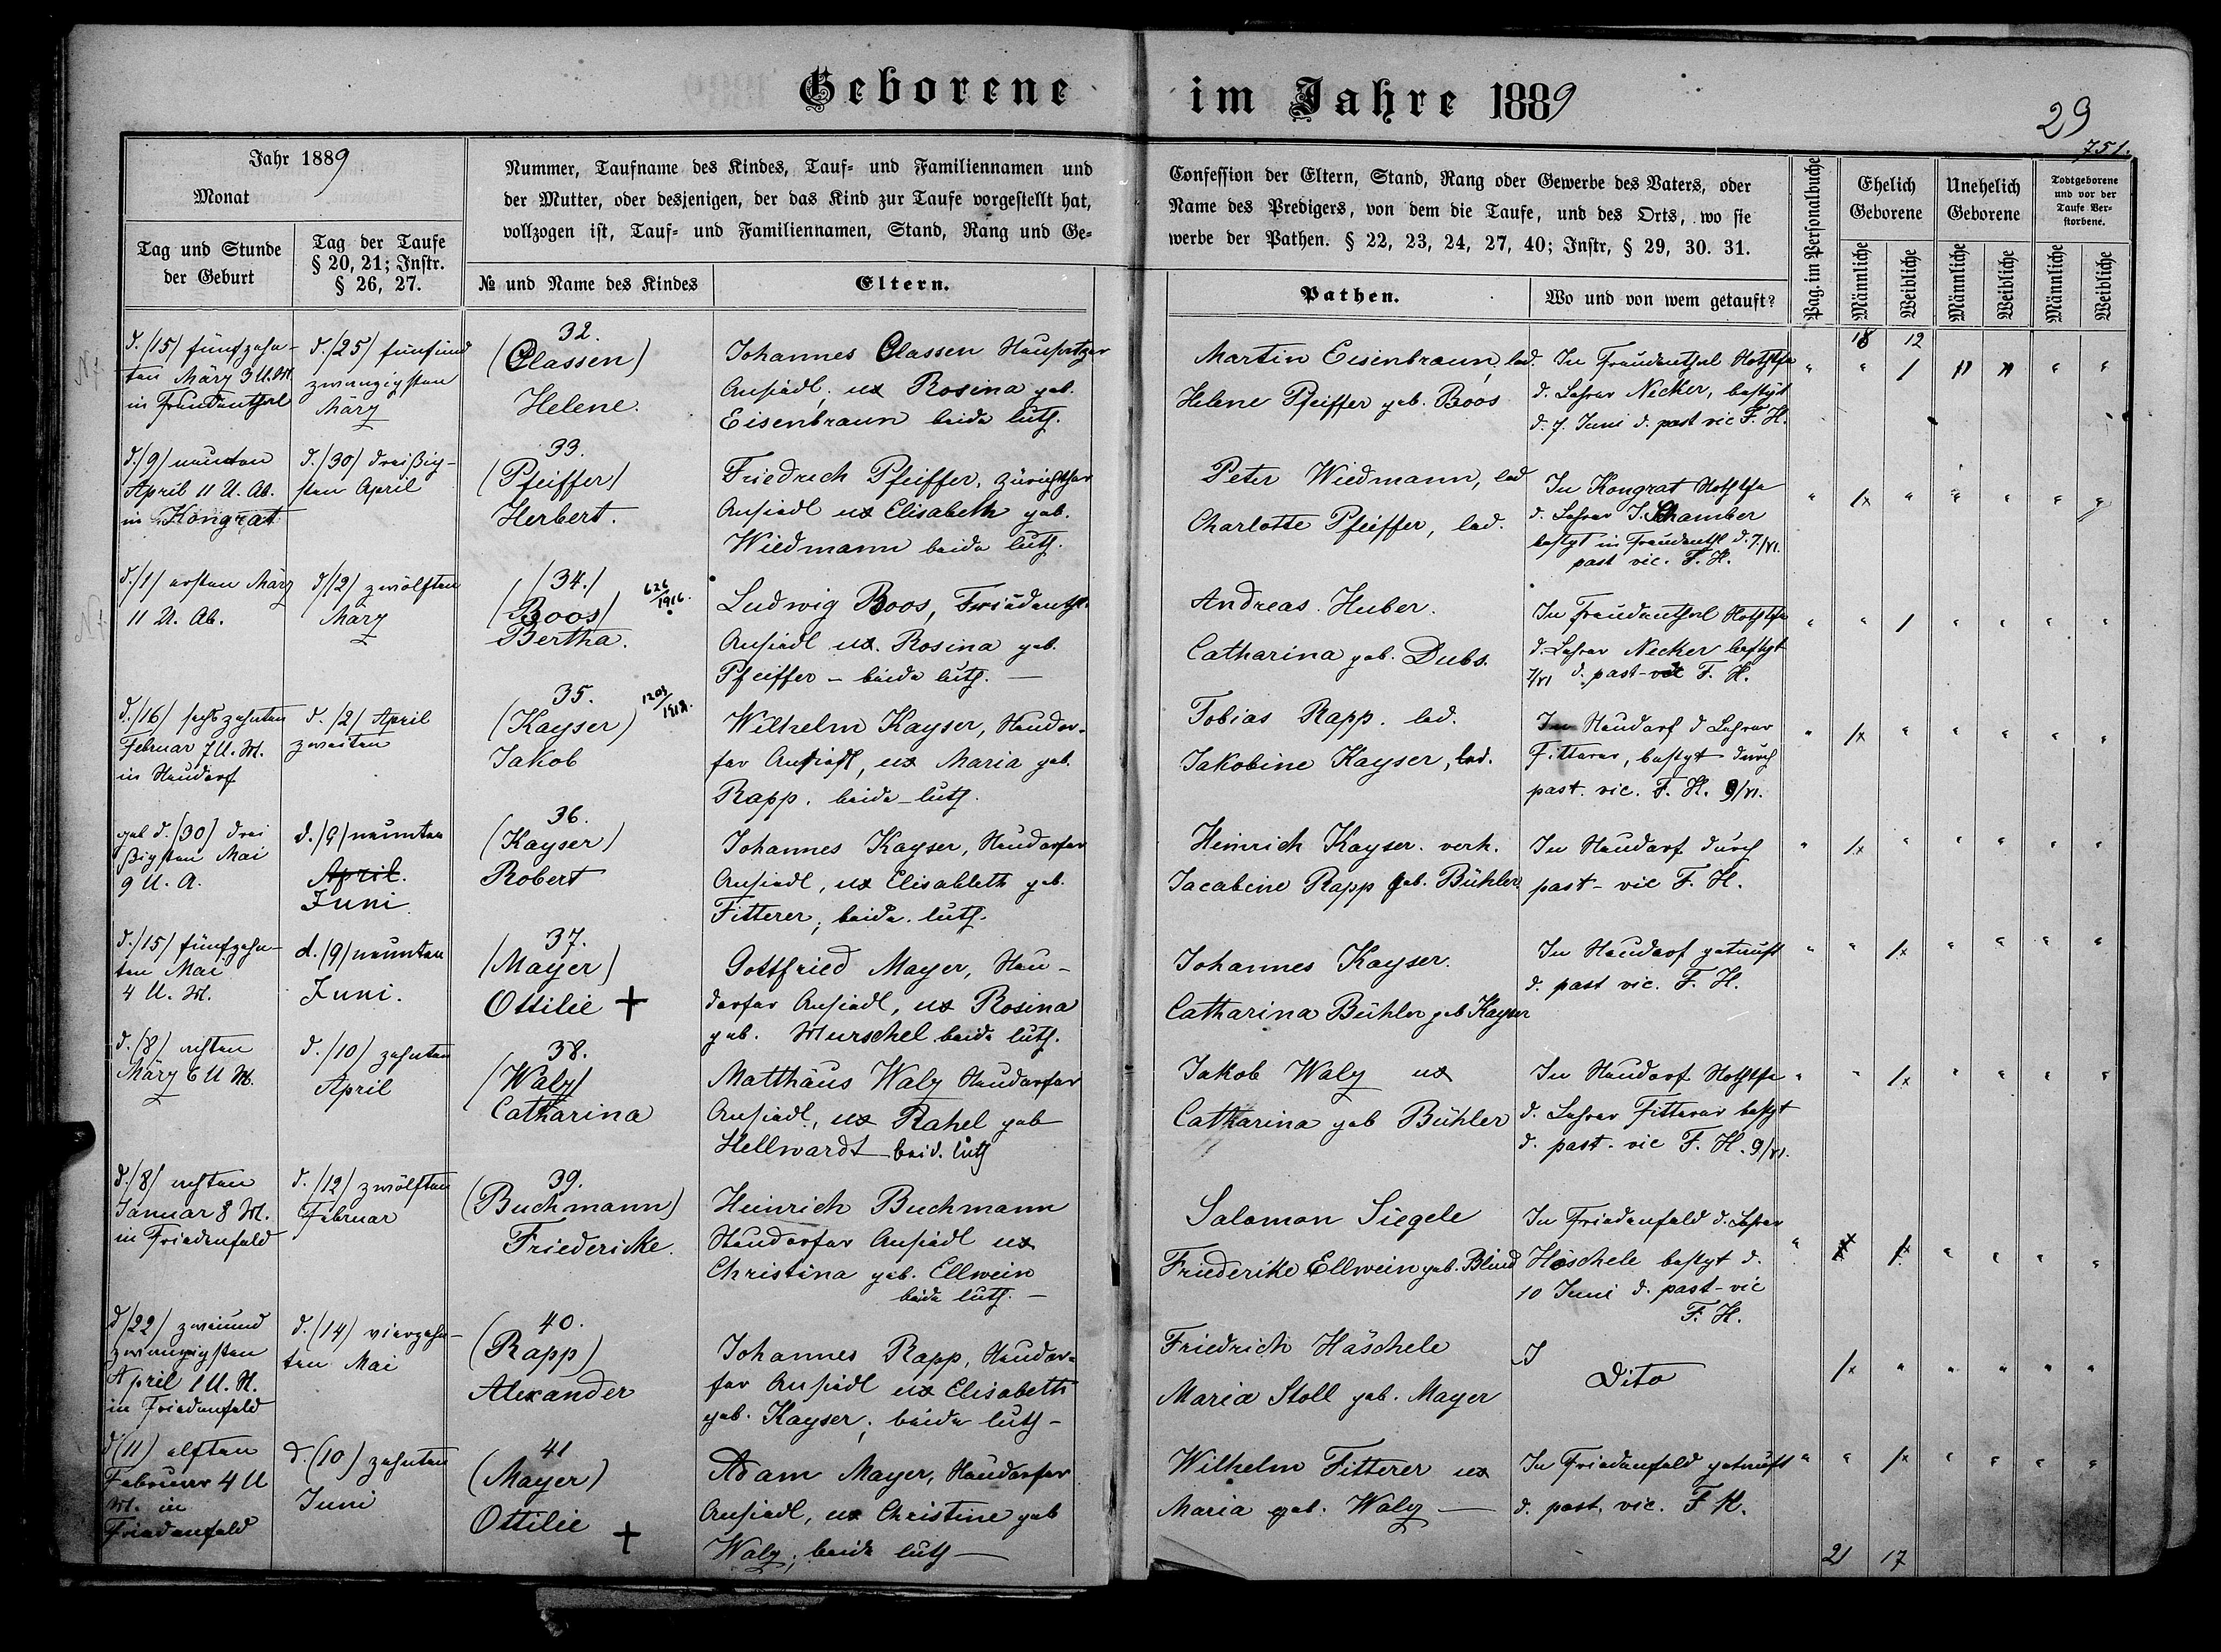 Geborene im Jahre 1889
29
751.
Jahr 1889
Monat
Tag und Stunde
der Geburt
Tag der Taufe
§ 20, 21; Instr.
§ 26, 27.
Nummer, Taufname des Kindes, Tauf- und Familiennamen und
der Mutter, oder desjenigen, der das Kind zur Taufe vorgestellt hat,
vollzogen ist, Tauf- und Familiennamen, Stand, Rang und Ge-
№ und Name des Kindes
Eltern.
Confession der Eltern, Stand, Rang oder Gewerbe des Vaters, oder
Name des Predigers, von dem die Taufe, und des Orts, wo sie
werbe der Pathen. § 22, 23, 24, 27, 40; Instr, § 29, 30. 31.
Pathen.
Wo und von wem getauft?
Pag. im Personalbuche
Ehelich
Geborene
Unehelich
Geborene
Todtgeborene
und vor der
Taufe Ver-
storbene.
Männliche
Weibliche
Männliche
Weibliche
Männliche
Weibliche
18 12
d. /15/ fünfzehn-
ten März 3 U. M.
in Freudenthal
d. /25/ fünfund
zwanzigsten
März
32.
(Classen)
Helene.
Johannes Classen
Ansiedl. ux Rosina geb.
Eisenbraun beide luth.
Martin Eisenbraun, led.
Helene Pfeiffer geb. Boos
In Freudenthal Nothtfe
d. Lehrer Necker, bestgt
d. 7. Juni d. past vic F. H.
d. /9/ neunten
April 11 U. Ab.
in Kongrat
d. /30/ dreißig-
sten April
33.
(Pfeiffer)
Herbert.
Friedrich Pfeiffer, Zürichthler
Ansiedl ux Elisabeth geb.
Wiedmann beide luth.
Peter Wiedmann, led
Charlotte Pfeiffer, led.
In Kongrat Nothtfe
d. Lehrer J. Schamber
bestgt in Freudenthl d. 7./VI.
past vic. F. H.
d. /1/ ersten März
11 U. Ab.
d /12/ zwölften
März
/34./
626/1916.
(Boos)
Bertha.
Ludwig Boos, Freudenthl.
Ansiedl ux. Rosina geb.
Pfeiffer - beide luth. —
Andreas. Huber.
Catharina geb. Dubs.
In Freudenthal Nothtfe
d. Lehrer Necker bestgt
7/VI d. past-vic F. H.
d. /16/ sechszehnten
Februar 7 U. M.
in Neudorf
d. /2/ April
zweiten
35.
(Kayser)
Jakob
Wilhelm Kayser, Neudor-
fer Ansiedl, ux Maria geb.
Rapp. beide-luth.
Tobias Rapp. led.
Jakobine Kayser, led.
In Neudorf d Lehrer
Fitterer, bestgt durch
past. vic. F. H. 9/VI.
geb d. /30/ drei
ßigsten Mai
9 U. A.
d. /9/ neunten
April.
Juni
36.
(Kayser)
Robert
Johannes Kayser, Neudorfer
Ansiedl, ux Elisabeth geb.
Fitterer, beide. luth.
Heinrich Kayser. verh.
Jacabine Rapp geb. Bühler
In Neudorf durch
past-vic F. H.
d. /15/ fünfzehn-
ten Mai
4 U. M.
d. /9/ neunten
Juni.
37.
(Mayer)
Ottilie +
Gottfried Mayer, Neu-
dorfer Ansiedl, ux Rosina
geb. Murschel beide luth.
Johannes Kayser.
Catharina Bühler geb Kayser
In Neudorf getauft
d. past vic. F. H.
d. /8/ achten
März 6 U M.
d. /10/ zehnten
April
38.
(Walz)
Catharina
Matthäus Walz Neudorfer
Ansiedl, ux Rahel geb
Hellwardt beid. luth
Jakob Walz ux
Catharina geb Bühler
In Neudorf Nothtfe
d. Lehrer Fitterer bestgt
d. past-vic F. H. 9/VI.
d. /8/ achten
Januar 8 M.
in Friedenfeld
d. /12/ zwölften
Februar
39.
(Buchmann)
Friedericke.
Heinrich Buchmann
Neudorfer Ansiedl ux
Christina geb. Ellwein
beide luth. —
Salomon Siegele
Friederike Ellwein geb. Blind
In Friedenfeld d. Lehrer
Häschele bestgt d.
10 Juni d. past-vic
F. H.
d /22/ zweiund
zwanzigsten
April 1 U. N.
in Friedenfeld
d. (14) vierzehn-
ten Mai
40.
(Rapp)
Alexander
Johannes Rapp, Neudor-
fer Ansiedl ux Elisabeth
geb. Kayser; beide luth-
Friedrich Häschele
Maria Stoll geb. Mayer
Dito
d (11) elften
Februar 4 U
M. in
Friedenfeld
d. (10) zehnten
Juni
41
(Mayer)
Ottilie +
Adam Mayer, Neudorfer
Ansiedl, ux Christine geb
Walz; beide luth —
Wilhelm Fitterer ux
Maria geb. Walz —
In Friedenfeld getauft
d. past. vic. F H.
21 17